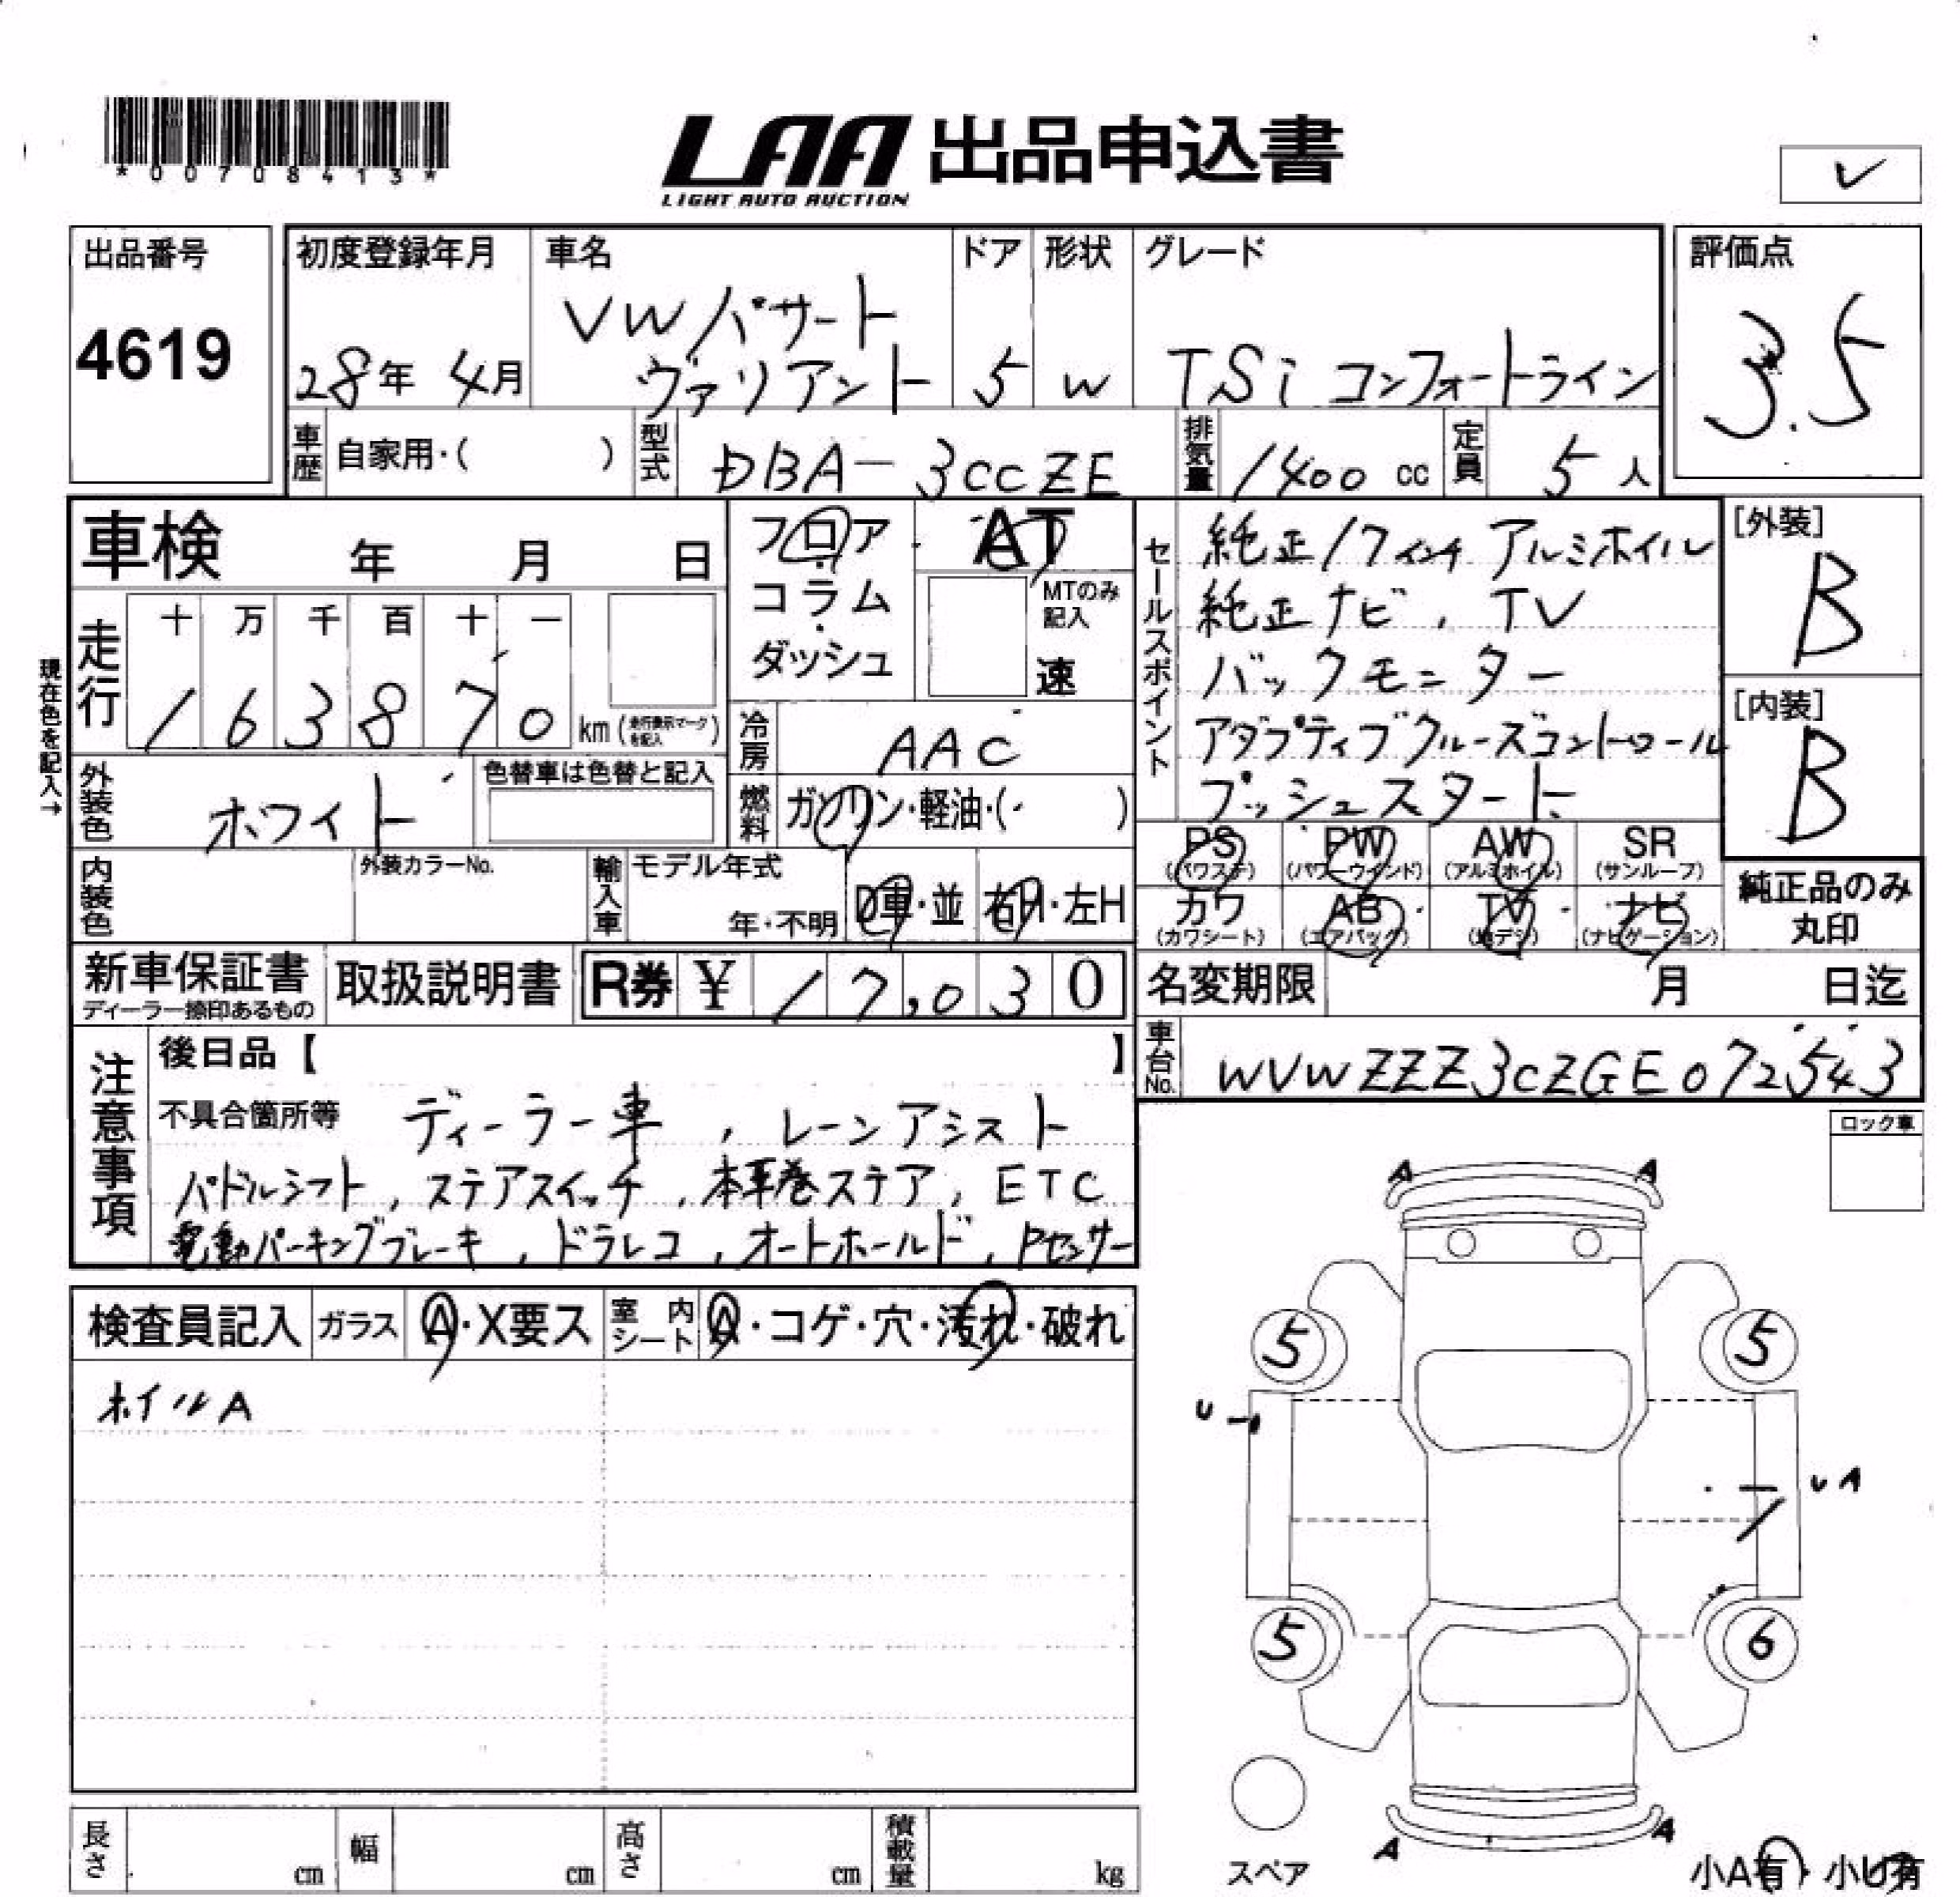 *00708413*
LAA 出品申込書
LIGHT AUTO AUCTION
✓
出品番号
4619
初度登録年月
28年 4月
車名
VWパサート
ヴァリアント
ドア
5
形状
W
グレード
TSi コンフォートライン
評価点
3.5
車歴 自家用・( )
型式 DBA-3CCZE
排気量 1400 cc
定員 5人
車検 年 月 日
フロア
コラム
ダッシュ
AT
MTのみ記入
速
セールスポイント
純正17インチ アルミホイル
純正ナビ, TV
バックモニター
アダプティブクルーズコントロール
プッシュスタート
[外装]
B
[内装]
B
現在色を記入→
走行
十 万 千 百 十 一
1 6 3 8 7 0 km (走行表示マークを記入)
冷房 AAC
外装色 ホワイト
色替車は色替と記入
燃料 ガソリン・軽油・( )
PS (パワステ)
PW (パワーウインド)
AW (アルミホイル)
SR (サンルーフ)
カワ (カワシート)
AB (エアバック)
TV (地デジ)
ナビ (ナビゲーション)
純正品のみ
丸印
内装色
外装カラーNo.
輸入車
モデル年式
年・不明
D車・並
右H・左H
新車保証書
ディーラー捺印あるもの
取扱説明書
R券 ¥ 17,030
名変期限 月 日迄
車台No. WVWZZZ3CZGE072543
注意事項
後日品【 】
不具合箇所等 ディーラー車, レーンアシスト
パドルシフト, ステアスイッチ, 本革巻ステア, ETC
電動パーキングブレーキ, ドラレコ, オートホールド, Pセンサー
ロック車
検査員記入
ガラス A・X要ス
室内シート A・コゲ・穴・汚れ・破れ
ホイルA
A A
5 5
U
UA
5 6
A A
スペア
小A有・小U有
長さ cm
幅 cm
高さ cm
積載量 kg